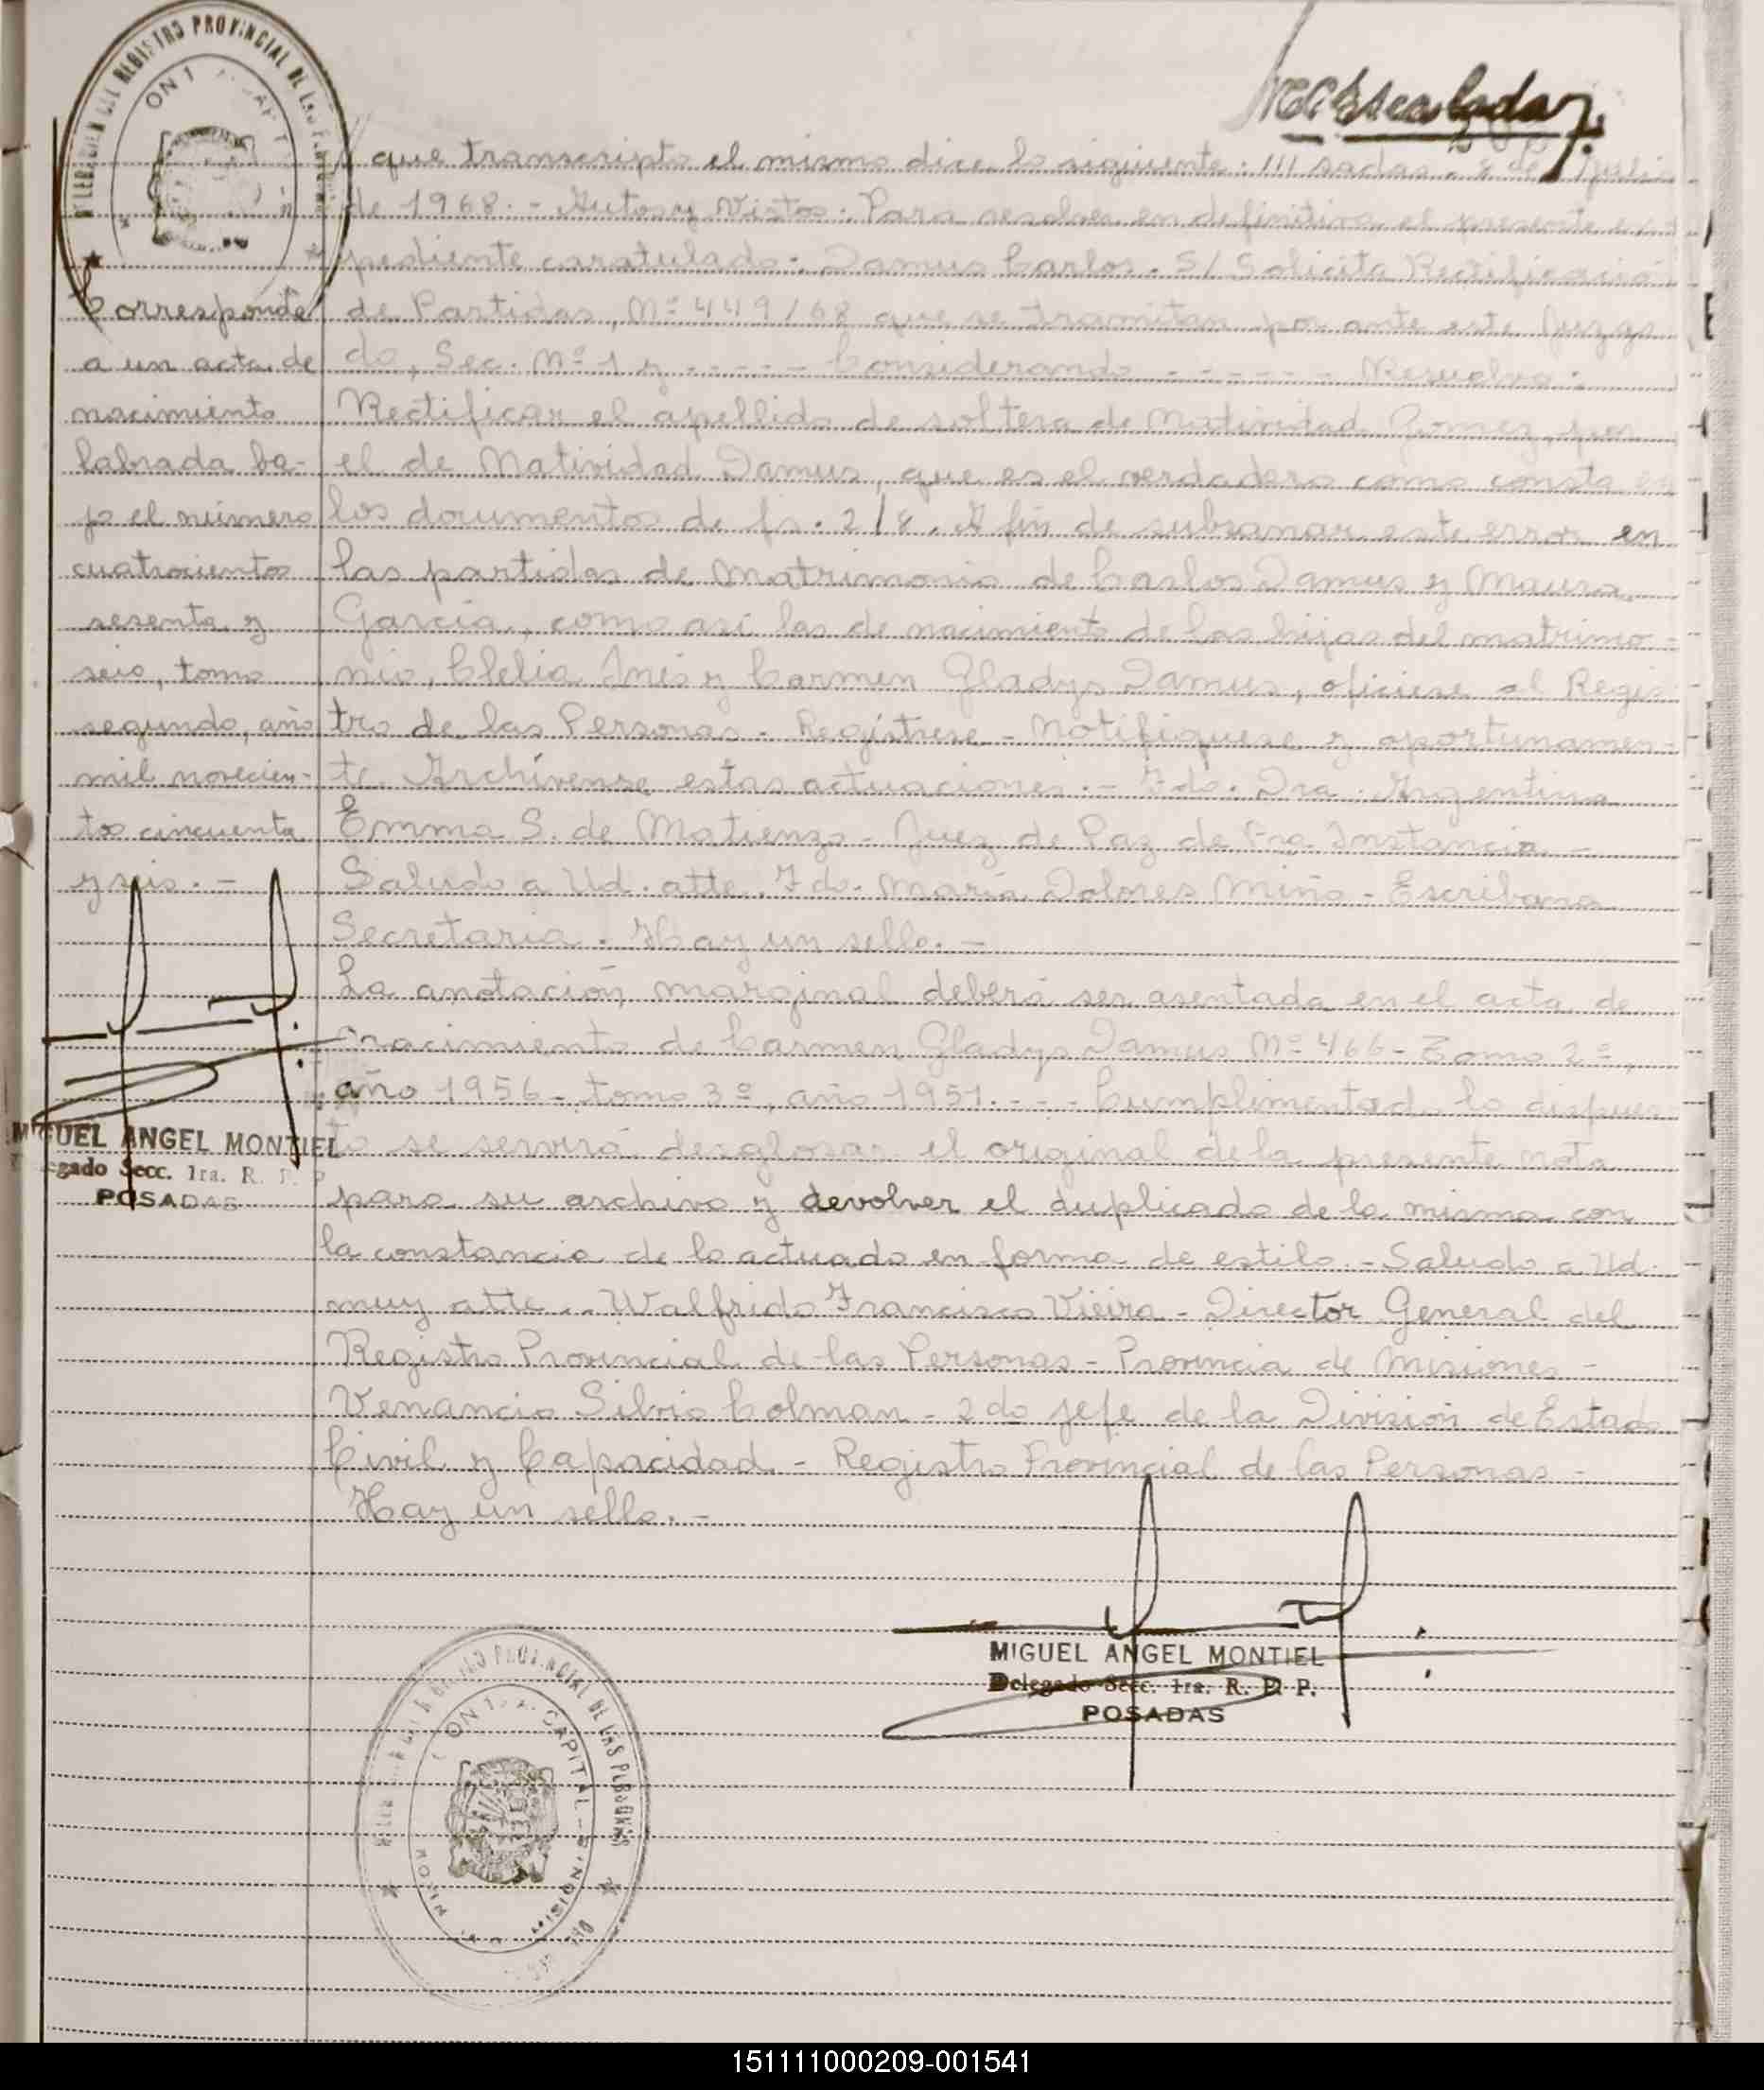 DELEGACION DEL REGISTRO PROVINCIAL DE LAS PERSONAS
Escalada
que transcripto el mismo dice lo siguiente: /// sadas, 8 de Julio
de 1968.- Autos y Vistos: Para resolver en definitiva el presente ex
pediente caratulado: Damus Carlos. S/ Solicita Rectificación
de Partidas, Nº 449/68 que se tramitan por ante este Juzga
do, Sec. Nº 1 y - - - - - Considerando - - - - - - Resuelvo:
Rectificar el apellido de soltera de Natividad Gomez, por
el de Natividad Damus, que es el verdadero como consta en
los documentos de fs. 2/8. A fin de subsanar este error en
las partidas de Matrimonio de Carlos Damus y Maura
García, como así las de nacimiento de las hijas del matrimo-
nio, Clelia Inés y Carmen Gladys Damus, ofíciese al Regis
tro de las Personas - Regístrese - Notifíquese y oportunamen-
te. Archívense estas actuaciones.- Fdo. Dra. Argentina
Emma S. de Matienzo - Juez de Paz de 1ra Instancia -
Saludo a Ud. atte. Fdo. María Dolores Miño - Escribana
Secretaria. Hay un sello.-
La anotación marginal deberá ser asentada en el acta de
nacimiento de Carmen Gladys Damus Nº 466 - Tomo 2º,
año 1956 - tomo 3º, año 1951. - - - Cumplimentado lo dispues
to se servirá desglosar el original de la presente nota
para su archivo y devolver el duplicado de la misma con
la constancia de lo actuado en forma de estilo.- Saludo a Ud.
muy atte.. Walfrido Francisco Vieira - Director General del
Registro Provincial de las Personas - Provincia de Misiones -
Venancio Silvio Colman - 2do Jefe de la División de Estado
Civil y Capacidad - Registro Provincial de las Personas -
Hay un sello.-
Corresponde
a un acta de
nacimiento
labrada ba-
jo el número
cuatrocientos
sesenta y
seis, tomo
segundo, año
mil novecien-
tos cincuenta
y seis.-
MIGUEL ANGEL MONTIEL
Delegado Secc. 1ra. R. P. P.
POSADAS
MIGUEL ANGEL MONTIEL
Delegado Secc. 1ra. R. P. P.
POSADAS
PROVINCIAL DE LAS PERSONAS
CAPITAL
151111000209-001541